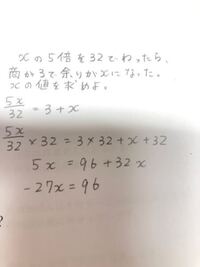 xの5倍を32でわったら、
商が3で余りがxになった。
xの値を求めよ。
5x/32 = 3 + x
5x/32 × 32 = 3 × 32 + x + 32
5x = 96 + 32x
-27x = 96
?